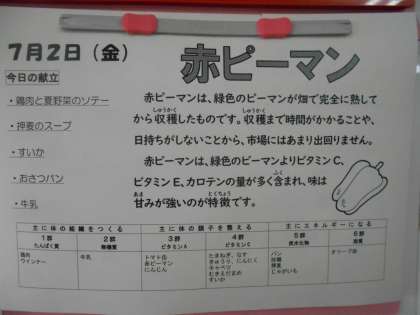 7月2日（金）
赤ピーマン
今日の献立
・鶏肉と夏野菜のソテー
・押麦のスープ
・すいか
・おさつパン
・牛乳
赤ピーマンは、緑色のピーマンが畑で完全に熟して
から収穫したものです。収穫まで時間がかかることや、
日持ちがしないことから、市場にはあまり出回りません。
赤ピーマンは、緑色のピーマンよりビタミンC、
ビタミンE、カロテンの量が多く含まれ、味は
甘みが強いのが特徴です。
しゅうかく
しゅうかく
ふく
あま
とくちょう
主に体の組織をつくる
主に体の調子を整える
主にエネルギーになる
1群
たんぱく質
2群
無機質
3群
ビタミンA
4群
ビタミンC
5群
炭水化物
6群
脂質
鶏肉
ウインナー
牛乳
トマト缶
赤ピーマン
にんじん
たまねぎ、なす
きゅうり、にんにく
キャベツ
えだまめ
すいか
パン
押麦
じゃがいも
オリーブ油